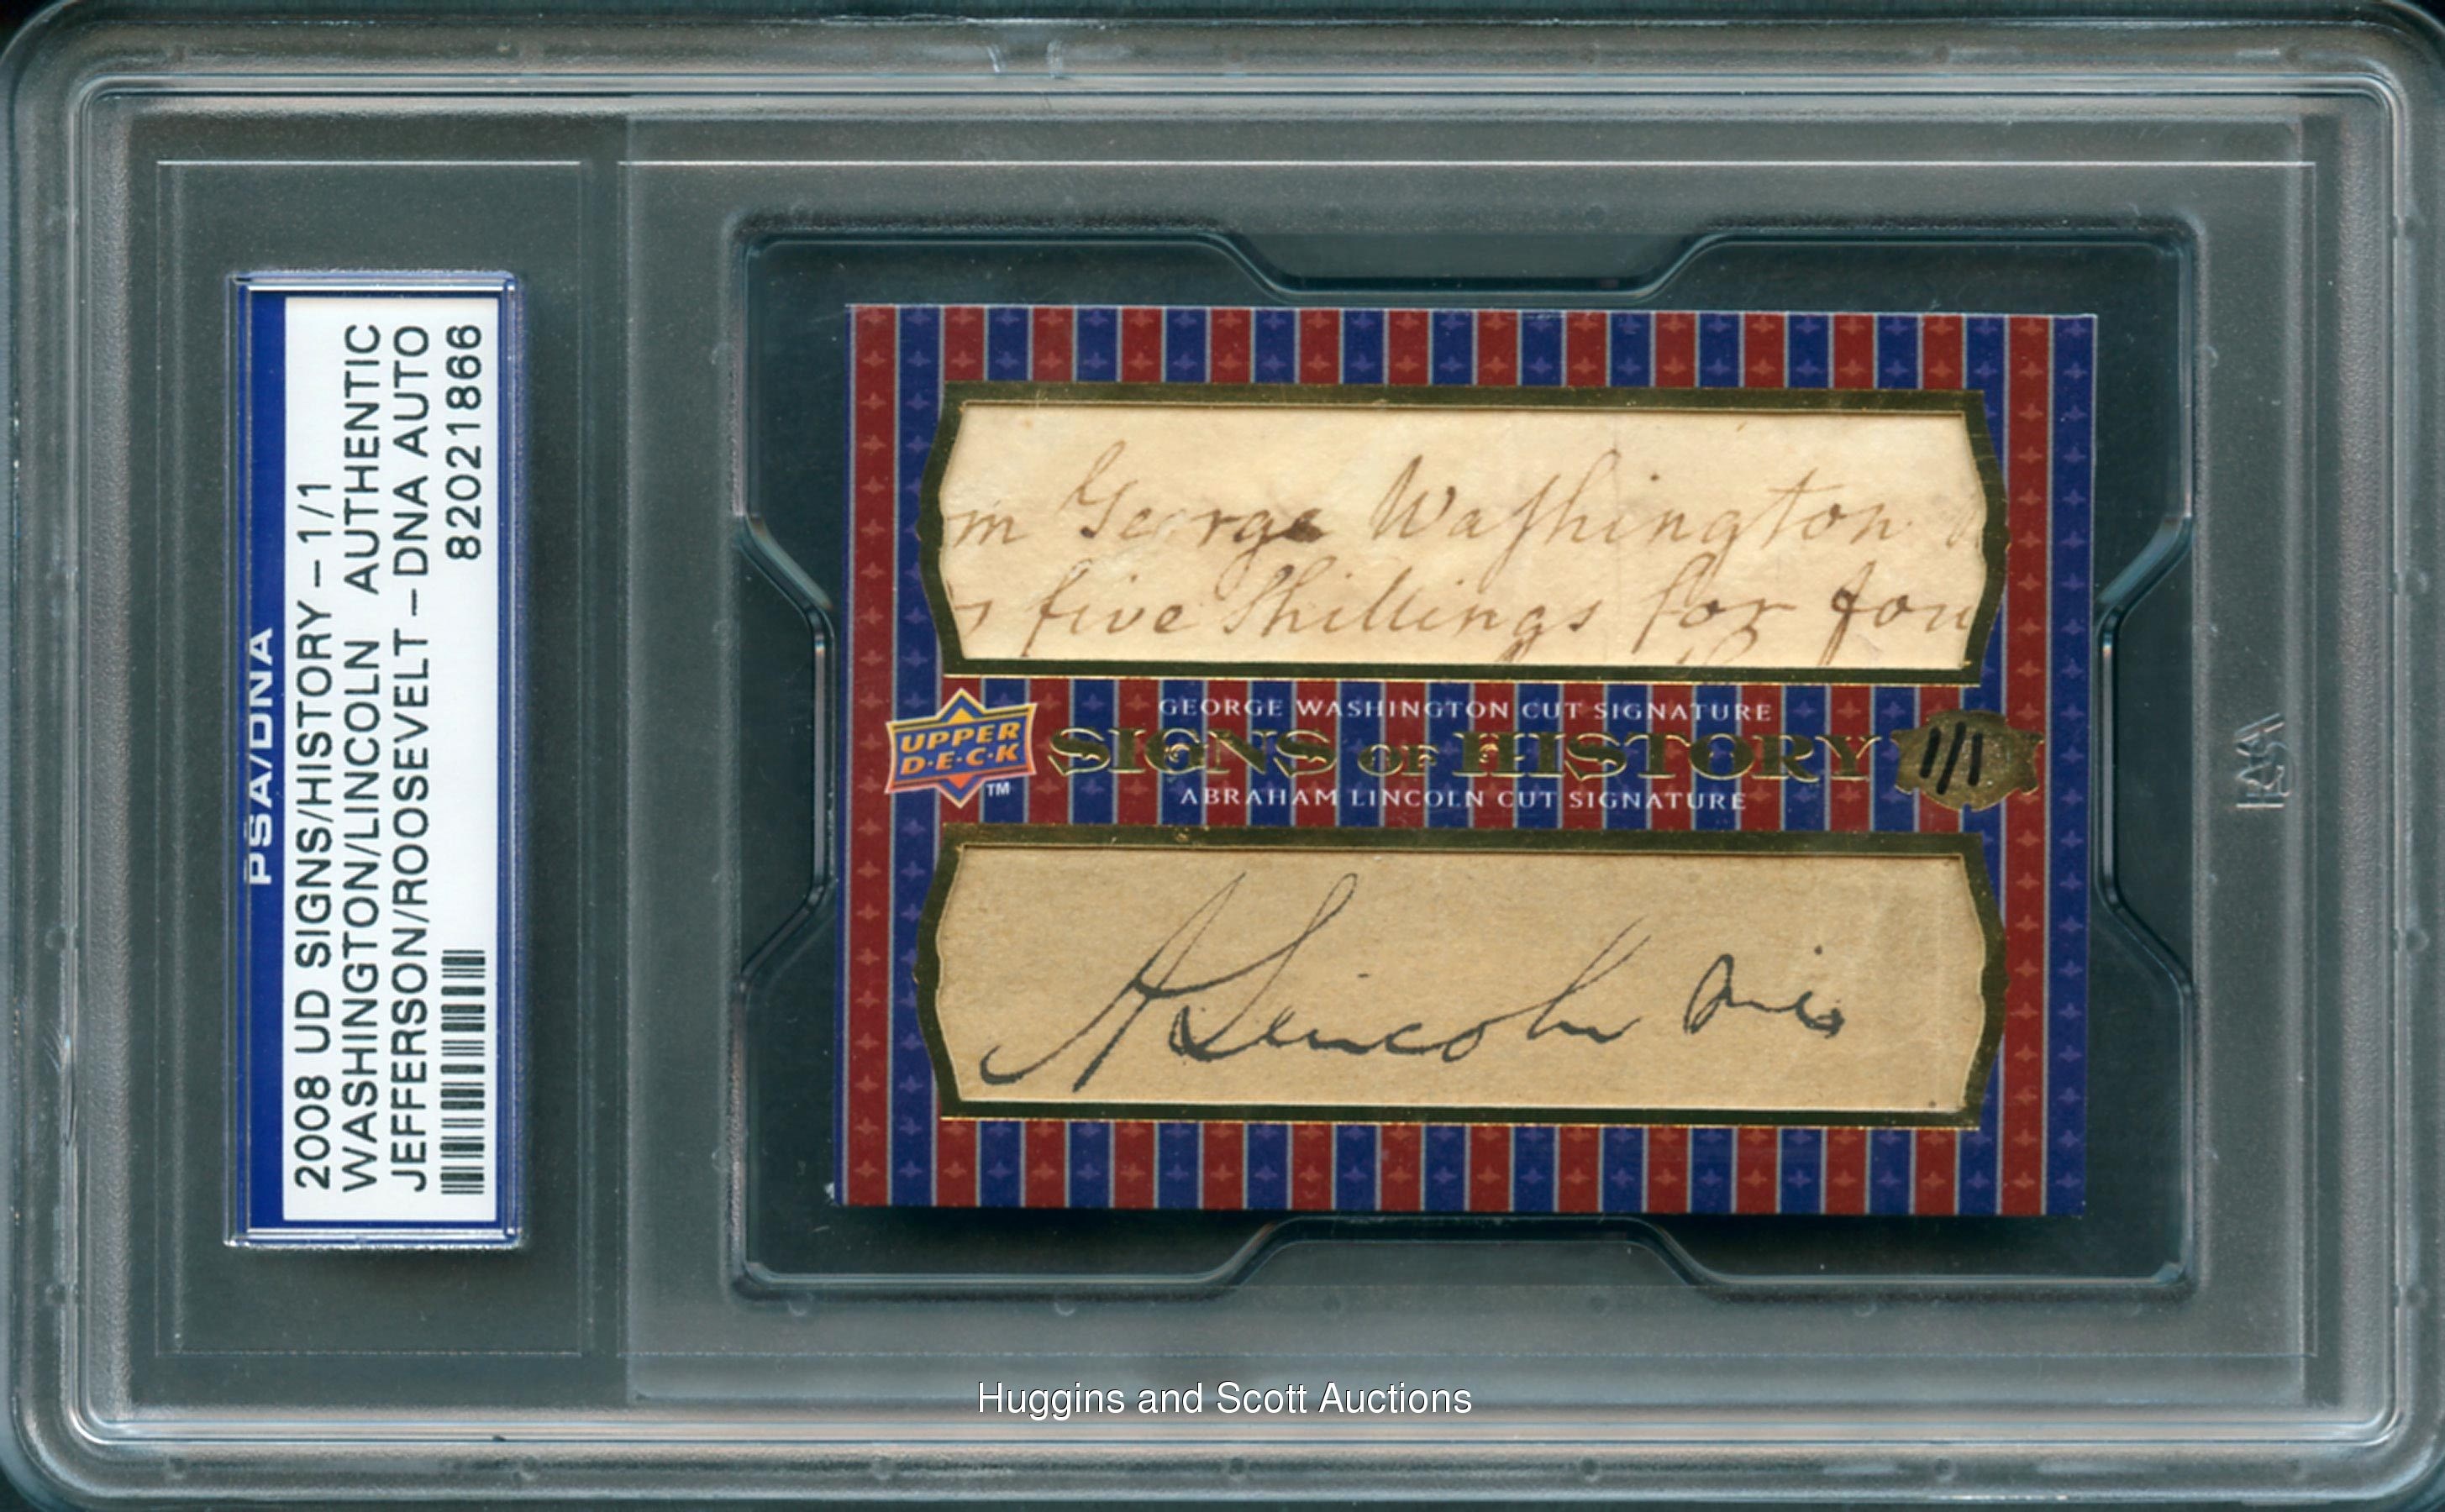 PSA/DNA
2008 UD SIGNS/HISTORY – 1/1
WASHINGTON/LINCOLN AUTHENTIC
JEFFERSON/ROOSEVELT – DNA AUTO
82021866
m George Washington
five Shillings for fou
GEORGE WASHINGTON CUT SIGNATURE
UPPER
D•E•C•K
TM
SIGNS OF HISTORY
1/1
ABRAHAM LINCOLN CUT SIGNATURE
A Lincoln
PSA
Huggins and Scott Auctions